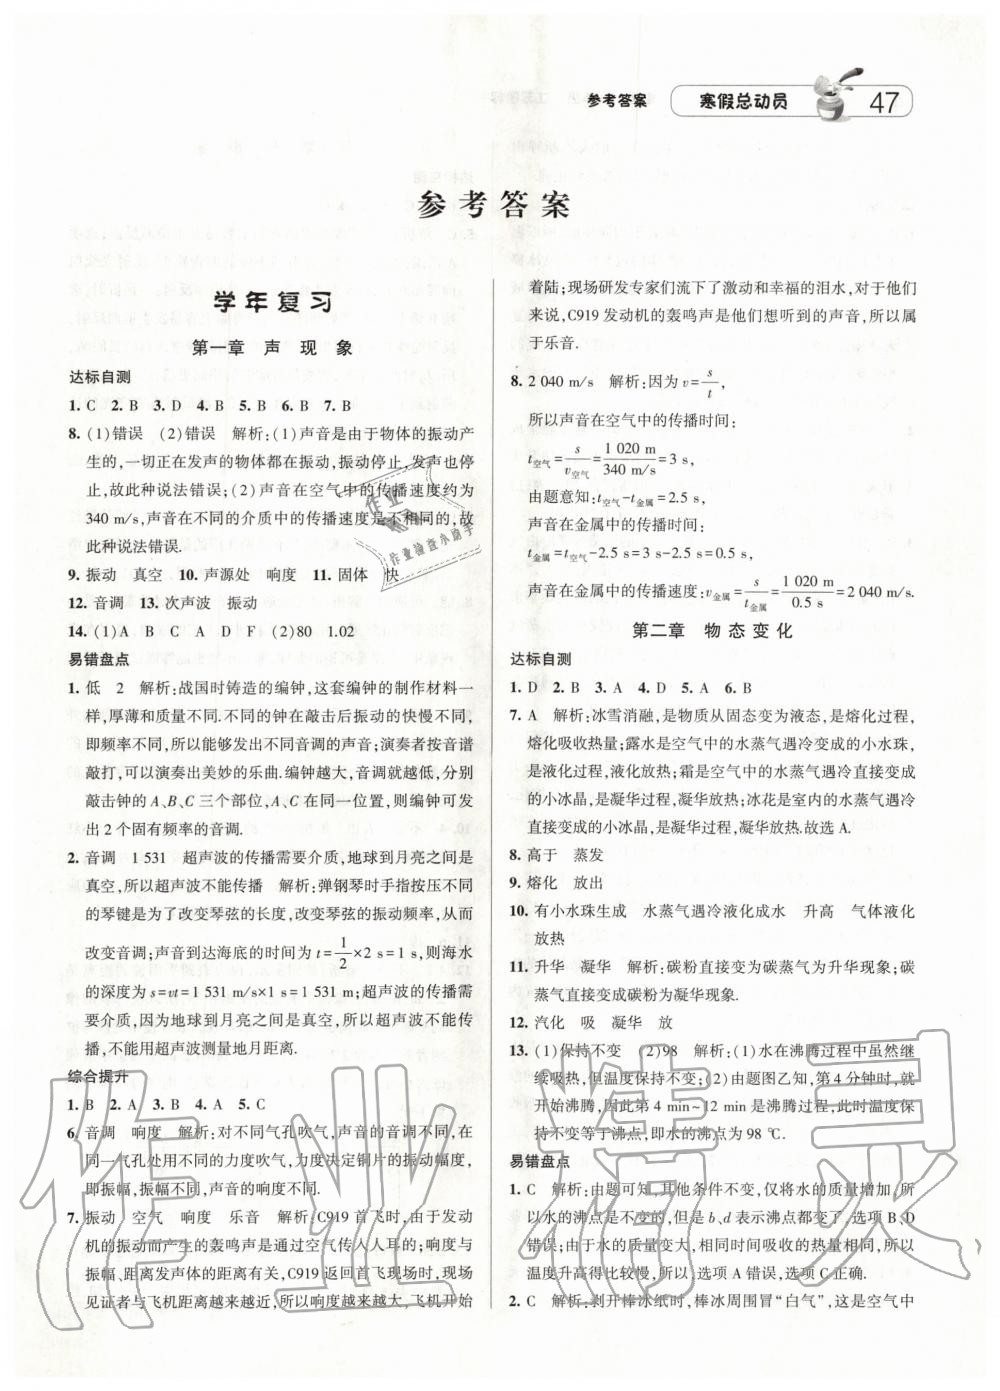 参考答案
寒假总动员
47
参考答案
学年复习
第一章 声现象
达标自测
1. C 2. B 3. D 4. B 5. B 6. B 7. B
8. (1)错误 (2)错误 解析:(1)声音是由于物体的振动产
生的,一切正在发声的物体都在振动,振动停止,发声也停
止,故此种说法错误;(2)声音在空气中的传播速度约为
340 m/s,声音在不同的介质中的传播速度是不相同的,故
此种说法错误.
9. 振动 真空 10. 声源处 响度 11. 固体 快
12. 音调 13. 次声波 振动
14. (1)A B C A D F (2)80 1.02
易错盘点
1. 低 2 解析:战国时铸造的编钟,这套编钟的制作材料一
样,厚薄和质量不同.不同的钟在敲击后振动的快慢不同,
即频率不同,所以能够发出不同音调的声音;演奏者按音谱
敲打,可以演奏出美妙的乐曲.编钟越大,音调就越低,分别
敲击钟的A、B、C三个部位,A、C在同一位置,则编钟可发
出2个固有频率的音调.
2. 音调 1 531 超声波的传播需要介质,地球到月亮之间是
真空,所以超声波不能传播 解析:弹钢琴时手指按压不同
的琴键是为了改变琴弦的长度,改变琴弦的振动频率,从而
改变音调;声音到达海底的时间为t=1/2×2 s=1 s,则海水
的深度为s=vt=1 531 m/s×1 s=1 531 m;超声波的传播需
要介质,因为地球到月亮之间是真空,所以超声波不能传
播,不能用超声波测量地月距离.
综合提升
1. B 2. A 3. B 4. A 5. C
6. 音调 响度 解析:对不同气孔吹气,声音的音调不同,在
同一气孔处用不同的力度吹气,力度决定铜片的振动幅度,
即振幅,振幅不同,声音的响度不同.
7. 振动 空气 响度 乐音 解析:C919首飞时,由于发动
机的振动而产生的轰鸣声是通过空气传人人耳的;响度与
振幅、距离发声体的距离有关,C919返回首飞现场时,现场
见证者与飞机距离越来越近,所以响度越来越大,飞机开始
着陆;现场研发专家们流下了激动和幸福的泪水,对于他们
来说,C919发动机的轰鸣声是他们想听到的声音,所以属
于乐音.
8. 2 040 m/s 解析:因为v=s/t,
所以声音在空气中的传播时间:
t空气=s/v空气=1 020 m/340 m/s=3 s,
由题意知:t空气-t金属=2.5 s,
声音在金属中的传播时间:
t金属=t空气-2.5 s=3 s-2.5 s=0.5 s,
声音在金属中的传播速度:v金属=s/t金属=1 020 m/0.5 s=2 040 m/s.
第二章 物态变化
达标自测
1. D 2. B 3. A 4. D 5. A 6. B
7. A 解析:冰雪消融,是物质从固态变为液态,是熔化过程,
熔化吸收热量;露水是空气中的水蒸气遇冷变成的小水珠,
是液化过程,液化放热;霜是空气中的水蒸气遇冷直接变成
的小冰晶,是凝华过程,凝华放热;冰花是室内的水蒸气遇冷
直接变成的小冰晶,是凝华过程,凝华放热.故选A.
8. 高于 蒸发
9. 熔化 放出
10. 有小水珠生成 水蒸气遇冷液化成水 升高 气体液化
放热
11. 升华 凝华 解析:碳粉直接变为碳蒸气为升华现象;碳
蒸气直接变成碳粉为凝华现象.
12. 汽化 吸 凝华 放
13. (1)保持不变 (2)98 解析:(1)水在沸腾过程中虽然继
续吸热,但温度保持不变;(2)由题图乙知,第4分钟时,就
开始沸腾,因此第4 min~12 min是沸腾过程;此时温度保
持不变等于沸点,即水的沸点为98 ℃.
易错盘点
1. C 解析:由题可知,其他条件不变,仅将水的质量增加,所
以水的沸点是不变的,但是b、d表示沸点都变了,选项B、D
错误;由于水的质量变大,相同时间吸收的热量不变,所以
温度升高得比较慢,所以,选项A错误,选项C正确.
2. C 解析:剥开棒冰纸时,棒冰周围冒“白气”,这是空气中
作业
作业检查小助手
作业精灵